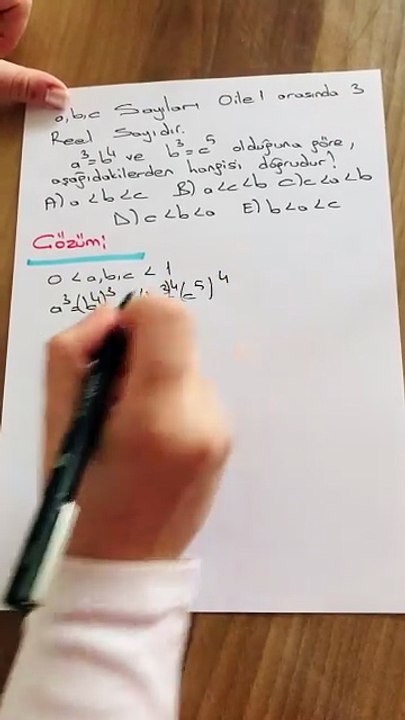 a,b,c Sayıları 0 ile 1 arasında 3
Reel Sayıdır.
a³=b⁴ ve b³=c⁵ olduğuna göre,
aşağıdakilerden hangisi doğrudur?
A) a<b<c B) a<c<b C) c<a<b
D) c<b<a E) b<a<c
Çözüm:
0 < a,b,c < 1
a³=(b⁴)³ (c⁵)⁴